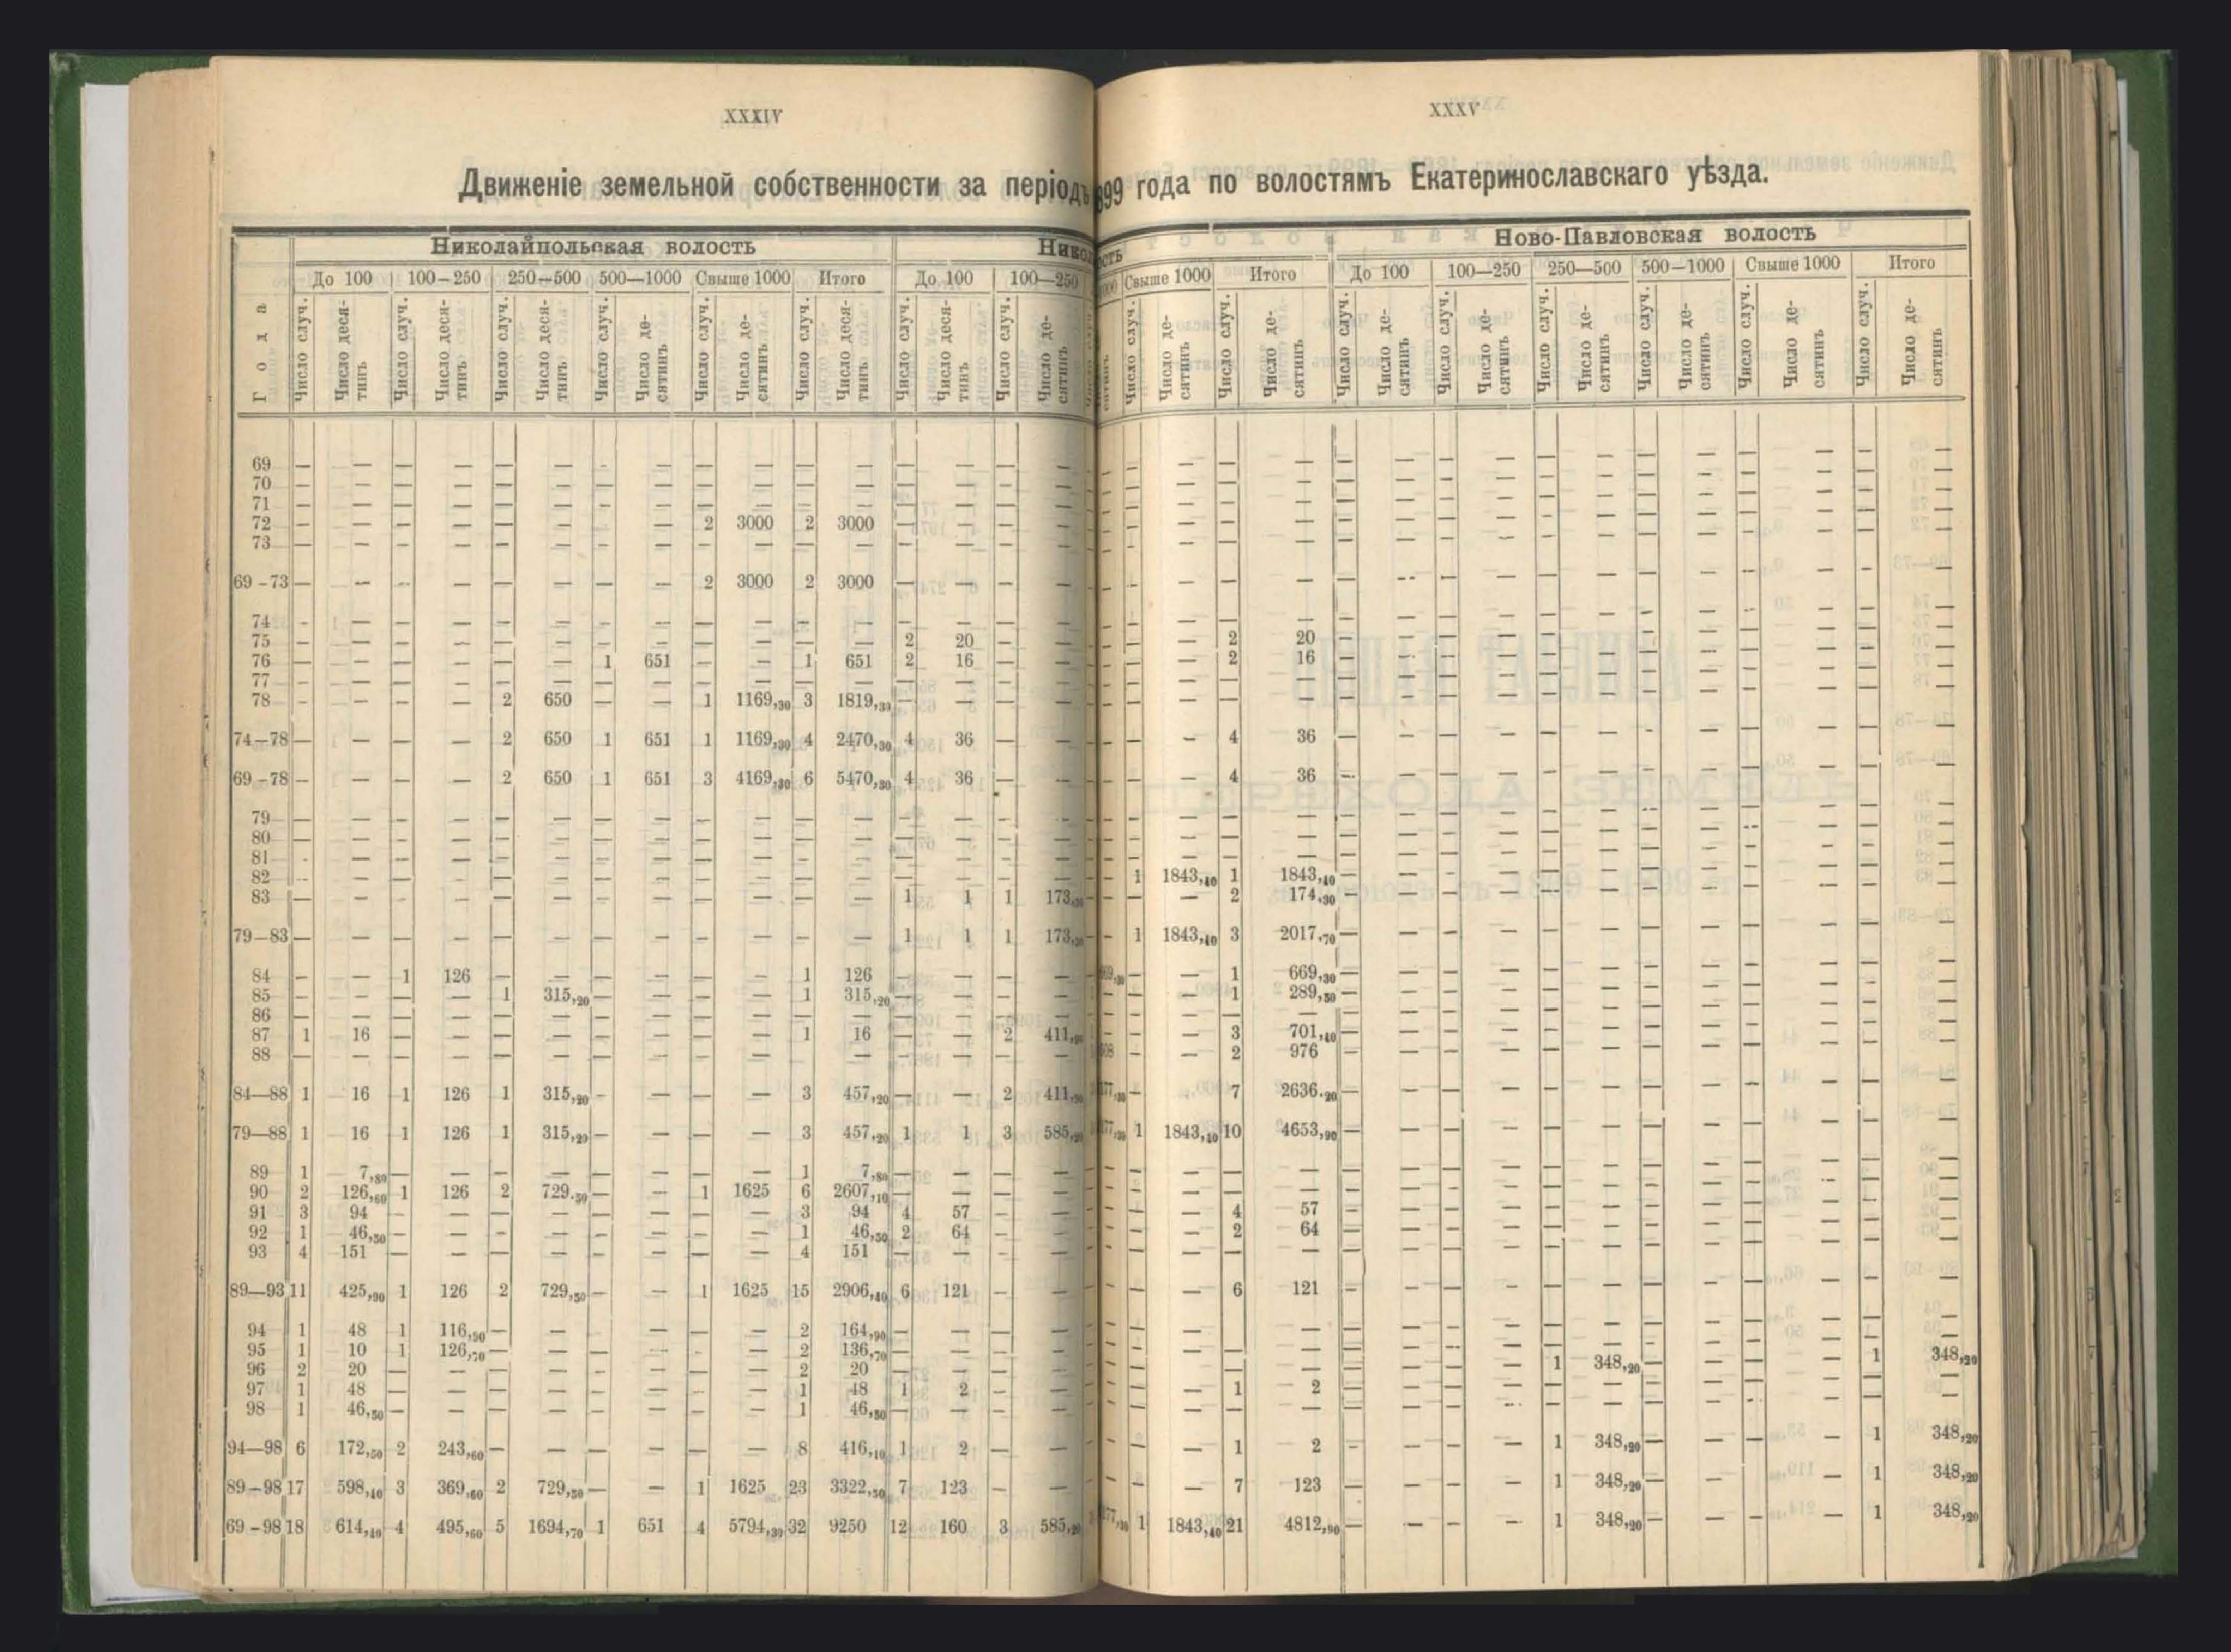 XXXIV
Движеніе земельной собственности за періодъ
Николайпольская волость
До 100 100–250 250–500 500–1000 Свыше 1000 Итого До 100 100–250
Года Число случ. Число деся-тинъ Число случ. Число деся-тинъ Число случ. Число деся-тинъ Число случ. Число де-сятинъ Число случ. Число де-сятинъ Число случ. Число деся-тинъ Число случ. Число деся-тинъ Число случ. Число де-сятинъ
69 — — — — — — - — — — — — — — — —
70 — — — — — — — — — — — — — — — —
71 — — — — — — — — — — — — — — — —
72 — — — — — — — — 2 3000 2 3000 — — — —
73 — — — — — — — — — — — — — — — —
69-73 — — — — — — — — 2 3000 2 3000 — — — —
74 — — — — — — — — — — — — — — — —
75 — — — — — — — — — — — — 2 20 — —
76 — — — — — — 1 651 — — 1 651 2 16 — —
77 — — — — — — — — — — — — — — — —
78 — — — — 2 650 — — 1 1169,30 3 1819,30 — — — —
74—78 — — — — 2 650 1 651 1 1169,30 4 2470,30 4 36 — —
69-78 — — — — 2 650 1 651 3 4169,30 6 5470,30 4 36 — —
79 — — — — — — — — — — — — — — — —
80 — — — — — — — — — — — — — — — —
81 — — — — — — — — — — — — — — — —
82 — — — — — — — — — — — — — — — —
83 — — — — — — — — — — — — 1 1 1 173
79—83 — — — — — — — — — — — — 1 1 1 173
84 — — 1 126 — — — — — — 1 126 — — — —
85 — — — — 1 315,20 — — — — 1 315,20 — — — —
86 — — — — — — — — — — — — — — — —
87 1 16 — — — — — — — — 1 16 — — 2 411
88 — — — — — — — — — — — — — — — —
84—88 1 16 1 126 1 315,20 — — — — 3 457,20 — — 2 411
79—88 1 16 1 126 1 315,20 — — — — 3 457,20 1 1 3 585
89 1 7,80 — — — — — — — — 1 7,80 — — — —
90 2 126,60 1 126 2 729.50 — — 1 1625 6 2607,10 — — — —
91 3 94 — — — — — — — — 3 94 4 57 — —
92 1 46,50 — — — — — — — — 1 46,50 2 64 — —
93 4 151 — — — — — — — — 4 151 — — — —
89—93 11 425,90 1 126 2 729,50 — — 1 1625 15 2906,40 6 121 — —
94 1 48 1 116,90 — — — — — — 2 164,90 — — — —
95 1 10 1 126,70 — — — — — — 2 136,70 — — — —
96 2 20 — — — — — — — — 2 20 — — — —
97 1 48 — — — — — — — — 1 48 1 2 — —
98 1 46,50 — — — — — — — — 1 46,50 — — — —
94—98 6 172,50 2 243,60 — — — — — — 8 416,10 1 2 — —
89-98 17 598,40 3 369,60 2 729,50 — — 1 1625 23 3322,50 7 123 — —
69-98 18 614,40 4 495,60 5 1694,70 1 651 4 5794,30 32 9250 12 160 3 585
XXXV
899 года по волостямъ Екатеринославскаго уѣзда.
Ново-Павловская волость
Свыше 1000 Итого До 100 100—250 250—500 500—1000 Свыше 1000 Итого
Число случ. Число де-сятинъ Число случ. Число де-сятинъ Число случ. Число де-сятинъ Число случ. Число де-сятинъ Число случ. Число де-сятинъ Число случ. Число де-сятинъ Число случ. Число де-сятинъ Число случ. Число де-сятинъ
— — — — — — — — — — — — — — — —
— — — — — — — — — — — — — — — —
— — — — — — — — — — — — — — — —
— — — — — — — — — — — — — — — —
— — — — — — — — — — — — — — — —
— — — — — — — — — — — — — — — —
— — — — — — — — — — — — — — — —
— — 2 20 — — — — — — — — — — — —
— — 2 16 — — — — — — — — — — — —
— — — — — — — — — — — — — — — —
— — — — — — — — — — — — — — — —
— — 4 36 — — — — — — — — — — — —
— — 4 36 — — — — — — — — — — — —
— — — — — — — — — — — — — — — —
— — — — — — — — — — — — — — — —
— — — — — — — — — — — — — — — —
1 1843,40 1 1843,40 — — — — — — — — — — — —
— — 2 174,30 — — — — — — — — — — — —
1 1843,40 3 2017,70 — — — — — — — — — — — —
— — 1 669,30 — — — — — — — — — — — —
— — 1 289,50 — — — — — — — — — — — —
— — — — — — — — — — — — — — — —
— — 3 701,40 — — — — — — — — — — — —
— — 2 976 — — — — — — — — — — — —
— — 7 2636.20 — — — — — — — — — — — —
1 1843,40 10 4653,90 — — — — — — — — — — — —
— — — — — — — — — — — — — — — —
— — — — — — — — — — — — — — — —
— — 4 57 — — — — — — — — — — — —
— — 2 64 — — — — — — — — — — — —
— — — — — — — — — — — — — — — —
— — 6 121 — — — — — — — — — — — —
— — — — — — — — — — — — — — — —
— — — — — — — — — — — — — — — —
— — — — — — — — 1 348,20 — — — — 1 348,20
— — 1 2 — — — — — — — — — — — —
— — — — — — — — — — — — — — — —
— — 1 2 — — — — 1 348,20 — — — — 1 348,20
— — 7 123 — — — — 1 348,20 — — — — 1 348,20
1 1843,40 21 4812,90 — — — — 1 348,20 — — — — 1 348,20